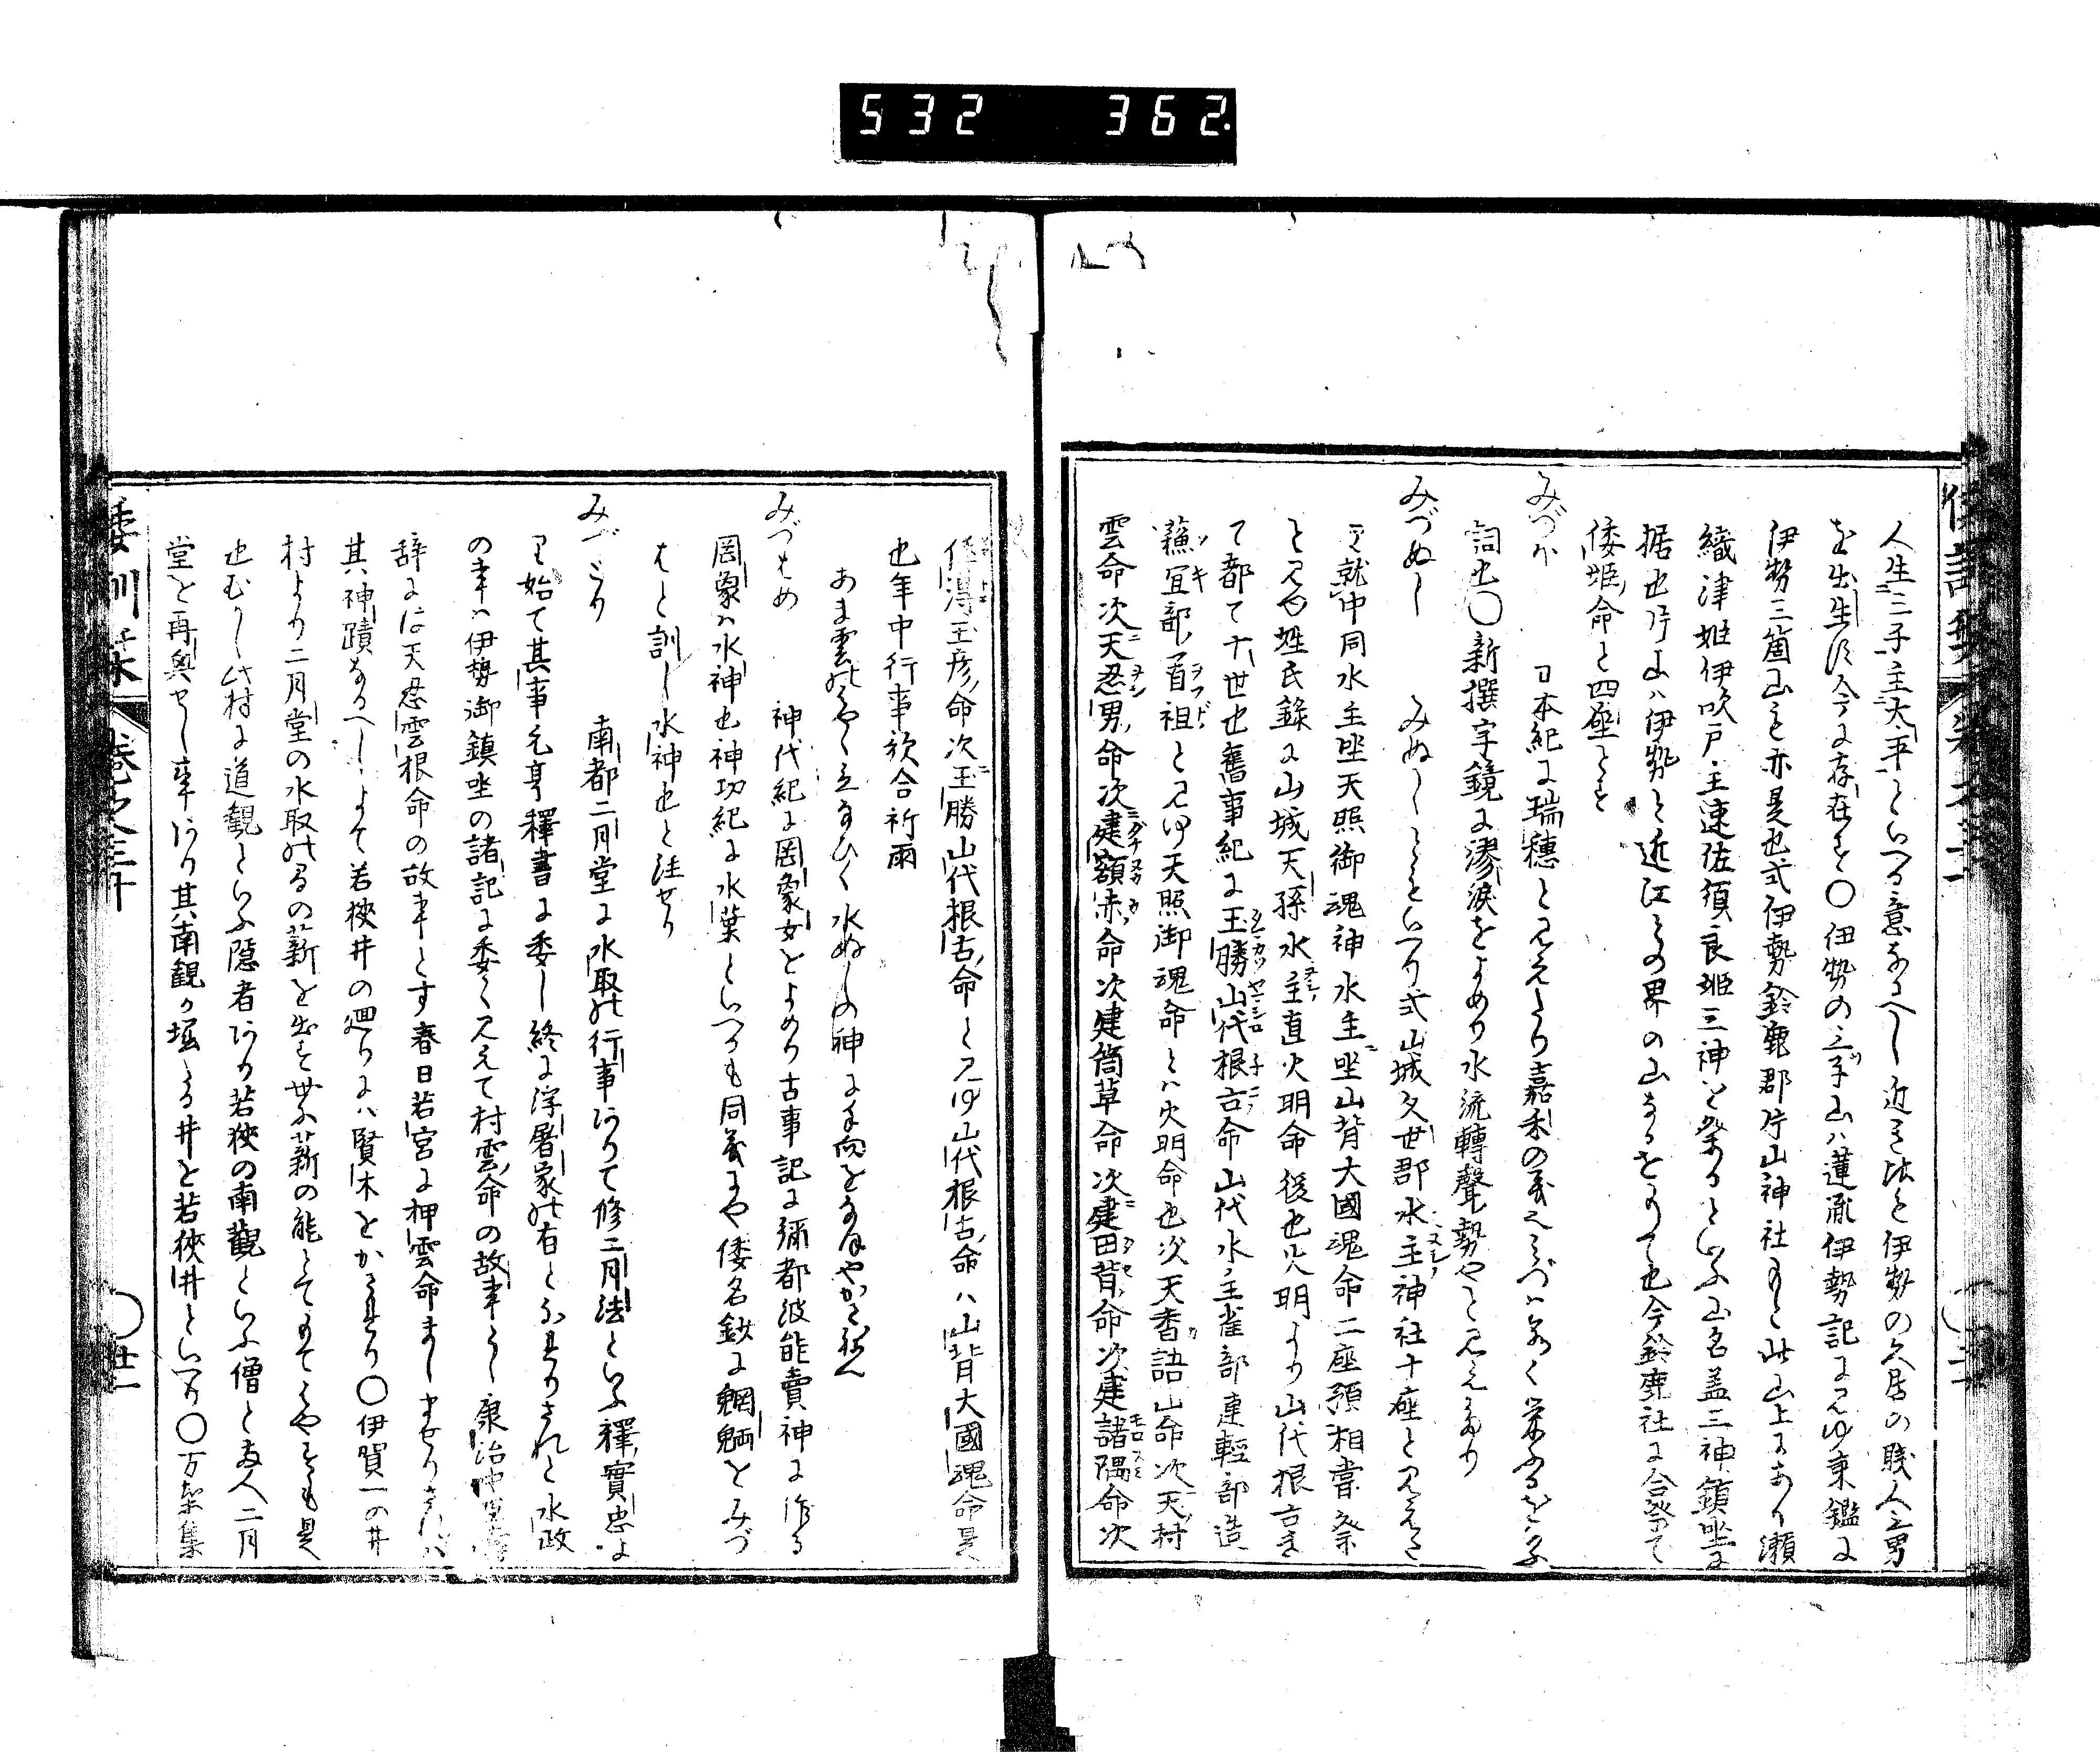 532 362
人生三子主大平といへる意なるへし近き比も伊勢の久居の賤人三男
を出生して今に存在す〇伊勢の三子山ハ蓮胤伊勢記にみゆ東鑑に
伊勢三箇山と亦是也式伊勢鈴鹿郡片山神社もと此山上にあり瀬
織津姫伊吹戸主速佐須良姫三神を祭るといふ山名盖三神鎮坐に
据也乃よハ伊勢と近江との界の山なるをもて也今鈴鹿社に合祭て
倭姫命と四座とす
みづほ 日本紀に瑞穂と見えたり嘉禾の義也みづハ若く栄ふるをいふ
詞也〇新撰字鏡に漻淚をよめり水流轉聲勢やと見えたり
みづぬし みぬしともいへり式山城久世郡水主神社十座と見えた
り就中同水主坐天照御魂神水主坐山背大國魂命二座預相嘗祭
と見ゆ姓氏錄に山城天孫水主直火明命後也火明より山代根古ま
て都て十世也舊事紀に玉勝山代根古命山代水主雀部連輕部造
蘇宜部首祖と見ゆ天照御魂命とハ火明命也次天香語山命次天村
雲命次天忍男命次建額赤命次建筒草命次建田背命次建諸隅命次
倭得玉彦命次玉勝山代根古命と見ゆ山代根古命ハ山背大國魂命是
也年中行事歌合祈雨
あま雲のやくゑなひく水ぬしの神に手向をなほやかさねん
みづはめ 神代紀に罔象女をよめり古事記に彌都波能賣神に作る
罔象ハ水神也神功紀に水葉といへるも同義にや倭名鈔に魍魎をみづ
はと訓し水神也と注せり
みづとり 南都二月堂に水取の行事ありて修二月法といふ釋實忠に
て始て其事元亨釋書に委し終に浮屠家の有となれりされと水政
の事ハ伊勢御鎮坐の諸記に委く見えて村雲命の故事とし康治中臣壽
辞には天忍雲根命の故事とす春日若宮に押雲命ましませりされハ
其神蹟なるへしよて若狹井の廻りにハ賢木をかさねり〇伊賀一の井
村より二月堂の水取の時の薪を出す世に薪の能とてもてはやすも是
也むかし此村に道觀といふ隱者あり若狹の南觀といふ僧と両人二月
堂を再興せし事あり其南観か堀たる井を若狹井といへり〇万葉集
倭訓栞 卷之三十 〇廿一